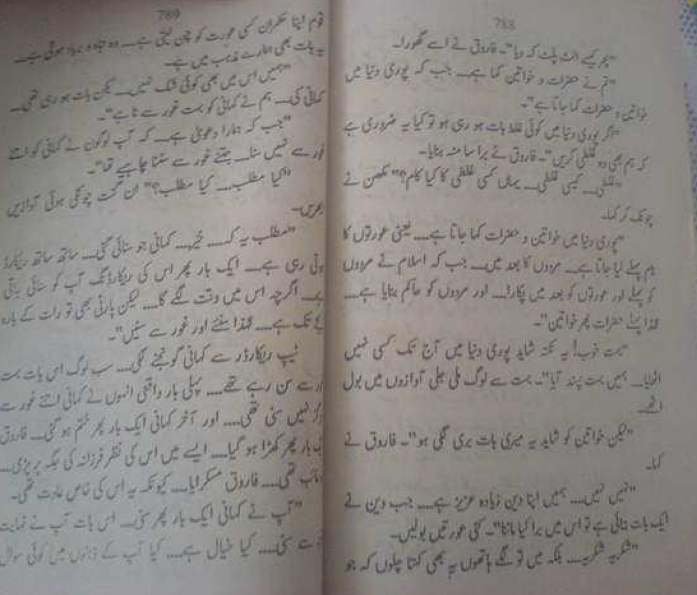 788
"پھر کیسے الٹ پلٹ کہہ دیا"۔ فاروق نے اسے گھورا۔
"تم نے حضرات و خواتین کہا ہے۔۔۔ جب کہ پوری دنیا میں
خواتین و حضرات کہا جاتا ہے"۔
"اگر پوری دنیا میں کوئی غلط بات ہو رہی ہو تو کیا یہ ضروری ہے
کہ ہم بھی وہ غلطی کریں"۔ فاروق نے برا سا منہ بنایا۔
"غلطی۔۔۔ کیسی غلطی۔۔۔ یہاں کسی غلطی کا کیا کام؟" مکھن نے
چونک کر کہا۔
"پوری دنیا میں خواتین و حضرات کہا جاتا ہے۔۔۔ یعنی عورتوں کا
نام پہلے لیا جاتا ہے۔ مردوں کا بعد میں۔۔۔ جب کہ اسلام نے مردوں
کو پہلے اور عورتوں کو بعد میں پکارا۔۔۔ اور مردوں کو حاکم بنایا ہے۔۔۔
لہٰذا پہلے حضرات پھر خواتین"۔
"بہت خوب! یہ نکتہ شاید پوری دنیا میں آج تک کسی نہیں
اٹھایا۔۔۔ ہمیں بہت پسند آیا"۔ بہت سے لوگ ملی جلی آوازوں میں بول
اٹھے۔
"لیکن خواتین کو شاید یہ میری بات بری لگی ہو"۔ فاروق نے
کہا۔
"نہیں نہیں۔۔۔ ہمیں اپنا دین زیادہ عزیز ہے۔۔۔ جب دین نے
ایک بات بتائی ہے تو اس میں برا کیا ماننا"۔ کئی عورتیں بولیں۔
"شکریہ شکریہ۔۔۔ بلکہ میں تو لگے ہاتھوں یہ بھی کہتا چلوں کہ جو
789
قوم اپنا حکمران کسی عورت کو چن لیتی ہے۔۔۔ وہ تباہ و برباد ہو جاتی ہے۔۔۔
یہ بات بھی ہمارے مذہب میں ہے۔
"ہمیں اس میں بھی کوئی شک نہیں۔۔۔ لیکن بات ہو رہی تھی۔۔۔
کہانی کی۔۔۔ ہم نے کہانی کو بہت غور سے سنا ہے"۔
"جب کہ ہمارا دعویٰ ہے۔۔۔ کہ آپ لوگوں نے کہانی کو اتنے
غور سے نہیں سنا۔۔۔ جتنے غور سے سننا چاہیے تھا"۔
"کیا مطلب۔۔۔ کیا مطلب؟" ان گنت چونکی ہوئی آوازیں
ابھریں۔
"مطلب یہ کہ۔۔۔ خیر۔۔۔ کہانی جو سنائی گئی۔۔۔ ساتھ ساتھ ریکارڈ
ہوتی رہی ہے۔۔۔ ایک بار پھر اس کی ریکارڈنگ آپ کو سنائی جاتی
ہے۔ اگرچہ اس میں وقت لگے گا۔۔۔ لیکن پارٹی بھی تو رات کے بارہ
بجے تک ہے۔۔۔ لہٰذا سنئے اور غور سے سنیں"۔
ٹیپ ریکارڈر سے کہانی گونجنے لگی۔۔۔ سب لوگ اس بات بہت
غور سے سن رہے تھے۔۔۔ پہلی بار واقعی انہوں نے کہانی اتنے غور سے
ہرگز نہیں سنی تھی۔۔۔ اور آخر کہانی ایک بار پھر ختم ہو گئی۔۔۔ فاروق
ایک بار پھر کھڑا ہو گیا۔۔۔ ایسے میں اس کی نظر فرزانہ کی جگہ پر پڑی۔۔۔
غائب تھی۔۔۔ فاروق مسکرایا۔۔۔ کیونکہ یہ اس کی خاص عادت تھی۔
"آپ نے کہانی ایک بار پھر سنی۔۔۔ اس بات آپ نے نہایت
سے سنی۔۔۔ کیا خیال ہے۔۔۔ کیا آپ کے ذہنوں میں کوئی سوال